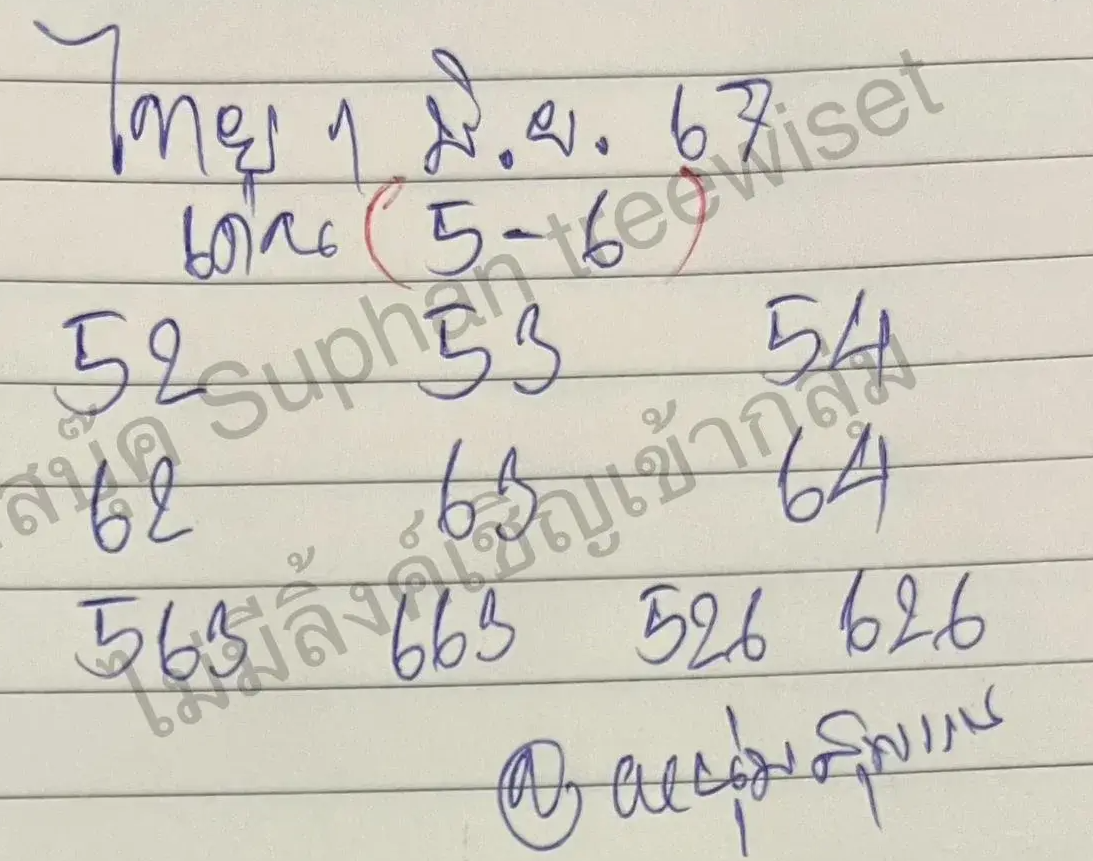 ไทย 1 มิ.ย. 67
เด่น (5-6)
52 53 54
62 63 64
563 663 526 626
สนุ๊ค Suphan treewiset
ไม่มีลิ้งค์เชิญเข้ากลุ่ม